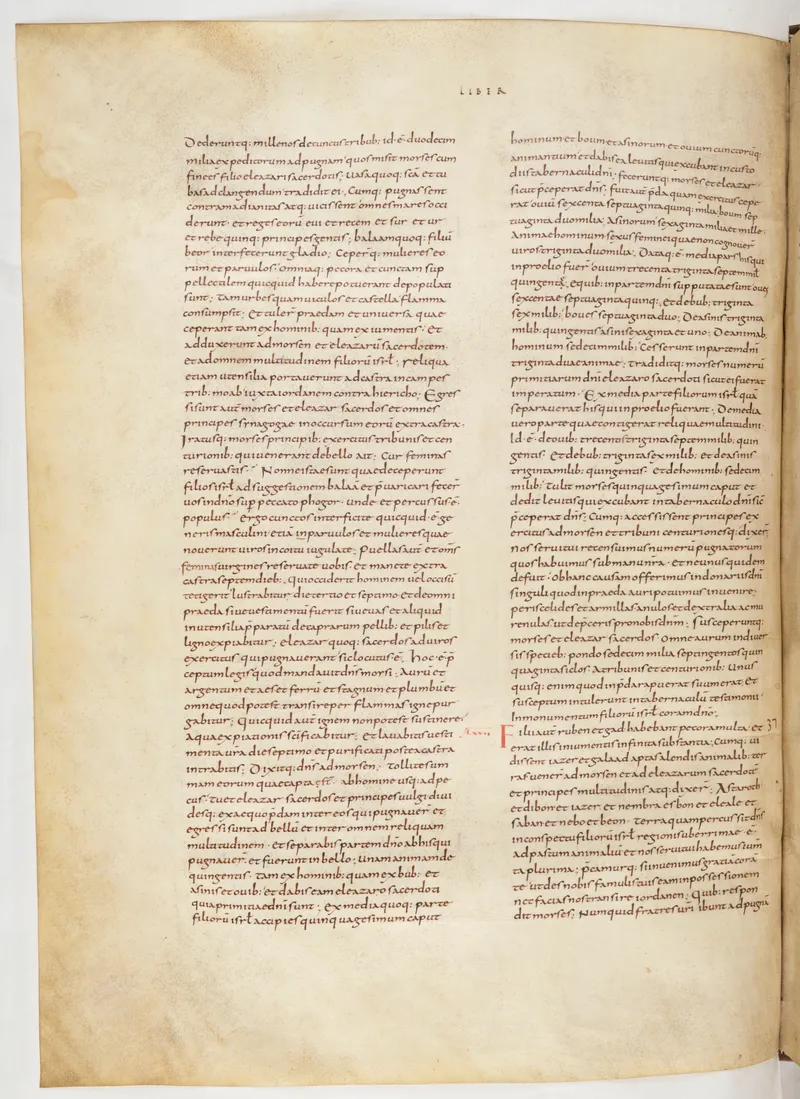 LIBER
Dederuntq: millenos decunctis tribub: id ÷ duodecim
milia expeditorum adpugnam quos misit moyses cum
finees filio eleazari sacerdotis; Uasa quoq: sca et tu
bas ad clangendum tradidit ei; Cumq: pugnassent
contra madianitas atq: uicissent omnes mares occi
derunt et reges eorū eui et recem et sur et ur
et rebe quinq: principes gentis; balaam quoq: filiū
beor interfecerunt gladio; Ceper̄q: mulieres eo
rum et paruulos omniaq: pecora et cunctam sup
pellectilem quicquid habere potuerant depopulati
sunt; tam urbes quam uiculos et castella flamma
consumpsit; Et tuler̄ praedam et uniuersa quae
ceperant tam ex hominib: quam ex iumentis; Et
adduxerunt ad moysen et eleazarū sacerdotem
et ad omnem multitudinem filiorū isrl; reliqua
etiam utensilia portauerunt ad castra in campes
trib: moab iuxta iordanem contra hiericho; Egres
si sunt aut̄ moyses et eleazar sacerdos et omnes
principes synagogae in occursum eorū extra castra;
Iratusq: moyses principib: exercitus tribunis et cen
turionib: qui uenerant de bello ait; Cur feminas
reseruastis; Nonne istae sunt quae deceperunt
filios isrl ad suggestionem balaā et p̄uaricari fecer̄
uos in dn̄o sup peccato phogor unde et percussus ÷
populus; Ergo cunctos interficite quicquid ÷ ge
neris masculini etiā in paruulos et mulieres quae
nouerunt uiros in coitu iugulate; puellas aut̄ et om̄s
feminas uirgines reseruate uobis et manete extra
castra septem dieb:; qui occiderit hominem uel occisū
tetigerit lustrabitur die tertio et septimo et de omni
praeda siue uestamentū fuerit siue uas et aliquid
in utensilia p̄paratū de caprarum pellib: et pilis et
ligno expiabitur; eleazar quoq: sacerdos ad uiros
exercitus qui pugnauerant sic locutus ÷; Hoc ÷ p̄
ceptum legis quod mandauit dn̄s moysi; Aurū et
argentum et aes et ferrū et stagnum et plumbū et
omne quod potest transire per flammas igne pur
gabitur; Quicquid aut̄ ignem non potest sustinere
Aqua expiationis scificabitur; et lauabitis uesti
menta ura die septimo et purificati postea castra
intrabitis; Dixitq: dn̄s ad moysen; Tollite sum
mam eorum quae capta s̄t ab homine usq: ad pe
cus; tu et eleazar sacerdos et principes uulgi diui
desq: ex aequo p̄dam inter eos qui pugnauer̄ et
egressi sunt ad bellū et inter omnem reliquam
multitudinem et separabis partem dn̄o ab his qui
pugnauer̄ et fuerunt in bello; Unam animam de
quingentis tam ex hominib: quam ex bub: et
asinis et ouib: et dabis eam eleazaro sacerdoti
quia primitiae dn̄i sunt; ex media quoq: parte
filiorū isrl accipies quinquagesimum caput
hominum et boum et asinorum et ouium cunctorūq:
animantium et dabis ea leuitis qui excubant in custo
diis tabernaculi dn̄i; feceruntq: moyses et eleazar
sicut p̄ceperat dn̄s; fuit aut̄ p̄da quam exercitus cepe
rat ouiū sexcenta septuaginta quinq: milia boum sep
tuaginta duo milia; Asinorum sexaginta milia et mille;
Animae hominum sexus feminei quae non cognouer̄
uiros triginta duo milia; Dataq: ÷ media pars his qui
in proelio fuer̄ ouium trecenta triginta septem mil
quingentę, e quib: in partem dn̄i supputatae sunt oues
sexcentae septuaginta quinq:; et de bub: triginta
sex milib: boues septuaginta duo; De asinis triginta
milib: quingentis asini sexaginta et uno; De animab:
hominum sedecim milib: Cesserunt in partem dn̄i
triginta duae animae; tradiditq: moyses numerū
primitiarum dn̄i eleazaro sacerdoti sicut ei fuerat
imperatum; Ex media parte filiorum isrl quā
separauerat his qui in proelio fuerant; De media
uero parte quae contigerat reliquae multitudini
Id ÷ de ouib: trecentis triginta septem milib: quin
gentis; Et de bub: triginta sex milib: et de asinis
triginta milib: quingentis; Et de hominib: sedecim
milib: tulit moyses quinquagesimum caput et
dedit leuitis qui excubant in tabernaculo dn̄i sic
p̄ceperat dn̄s; Cumq: accessissent principes ex
ercitus ad moysen et tribuni centurionesq: dixer̄
nos serui tui recensuimus numerū pugnatorum
quos habuimus sub manu nr̄a; et ne unus quidem
defuit; Ob hanc causam offerimus in donariis dn̄i
singuli quod in praeda auri potuimus inuenire
periscelides et armillas anulos et dextralia ac mu
renulas ut dep̄ceris pro nobis dn̄m; susceperuntq:
moyses et eleazar sacerdos omne aurum in diuer
sis specieb: pondo sedecim milia septingentos quin
quaginta siclos A tribunis et centurionib: Unus
quisq: enim quod in p̄da rapuerat suum erat; Et
susceptum intulerunt in tabernaculū testimonii
In monumentum filiorū isrl coram dn̄o;
Filii aut̄ ruben et gad habebant pecora multa et
erat illis in iumentis infinita substantia; Cumq: ui
dissent iazer et galaad aptas alendis animalib: ter
ras uener̄ ad moysen et ad eleazarum sacerdotē
et principes multitudinis atq: dixer̄; Astaroth
et dibon et iazer et nembra esbon et eleale et
saban et nebo et beon terra quam percussit dn̄s
in conspectu filiorū isrl regionis uberrimae ÷
ad pastum animaliū et nos serui tui habemus ium
ta plurima; p̄camurq: si inuenimus gratiā corā
te ut des nobis famulis tuis eam in possessionem
nec facias nos transire iordanen; Quib: respon
dit moyses; Numquid fratres uri ibunt ad pugnā